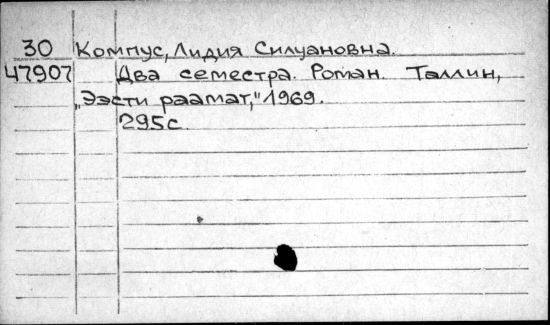 30 Компус, Лидия Силуановна.
47907 Два семестра. Роман. Таллин,
„Ээсти раамат," 1969.
295с.